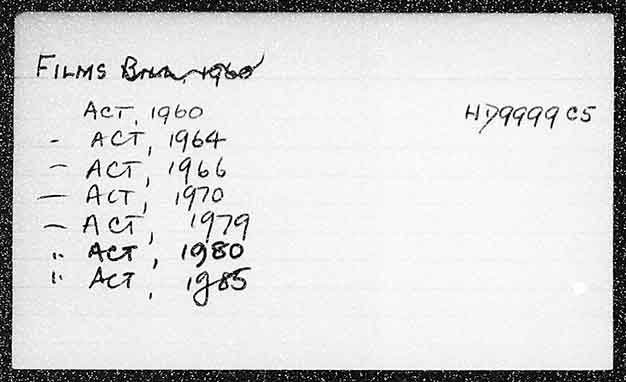 FILMS BILL, 1960
ACT, 1960 HD9999 C5
- ACT, 1964
- ACT, 1966
- ACT, 1970
- ACT, 1979
" ACT, 1980
" ACT, 1985